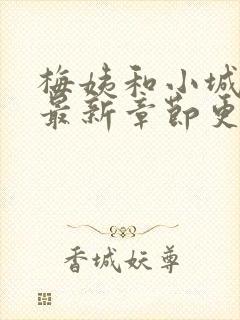 梅姨和小城
最新章节更
香城妖尊